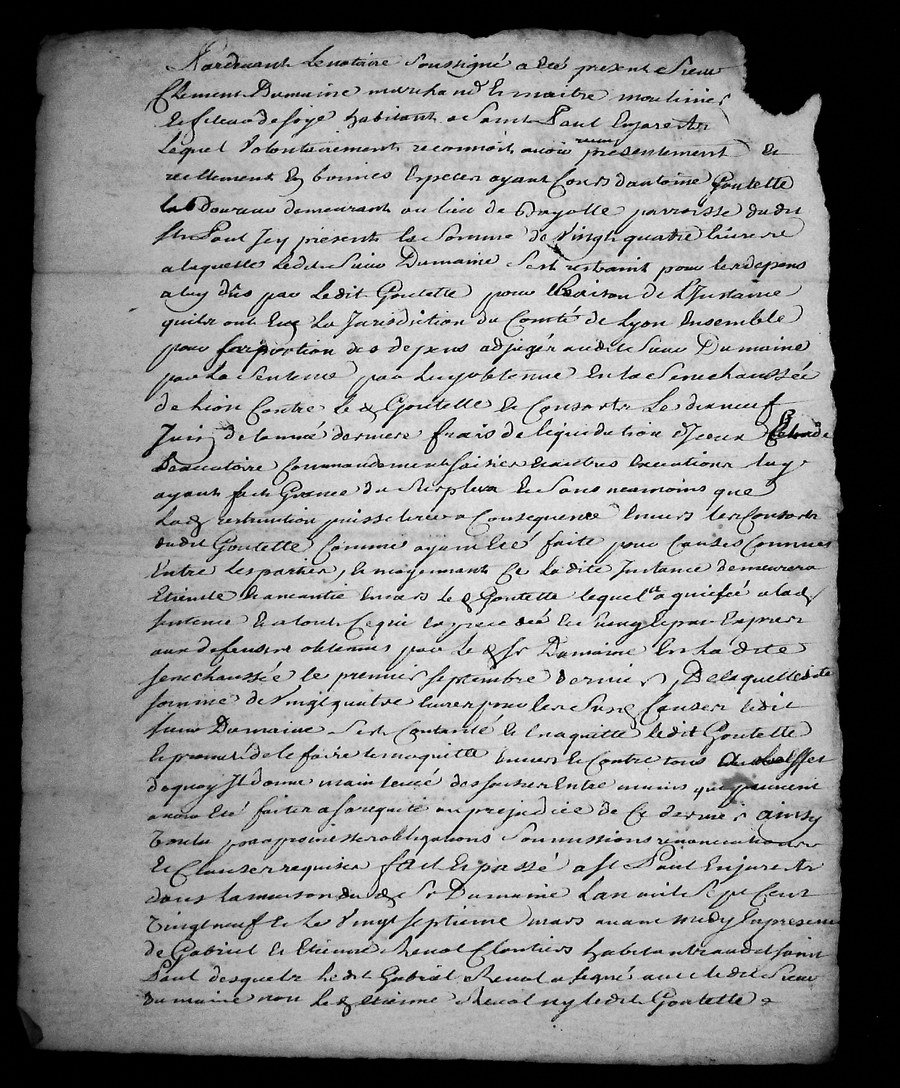 Pardevant le notaire soussigné a eté present Sieur
Clement Dumaine marchand & maitre moulinier
& fileur de soye habitant a Saint Paul Enjarestz
lequel volontairement reconnoit avoir receu presentement &
reellement En bonnes Especes ayant Cours dantoine Goutette
laboureur demeurant au lieu de parroisse dudit
St Paul Icy present la somme de vingt quatre livres
a laquelle ledit Sieur Dumaine sest restraint pour les depens
a luy dûs par ledit Goutette pour raison de l'Instance
quils ont Eüe La Jurisdiction du Comté de Lyon Ensemble
pour sa portion des depens adjugés audit Sieur Dumaine
par la Sentence par luy obtenue En la Senechaussée
de Lion Contre led Goutette & Consorts le dixneuf
Juin de lannée derniere frais de liquidation diceux
Executoire Commandement saisies & autres Executions luy
ayant fait Grace du Surplus & Sans neamoins que
lad restriction puisse tirer a Consequence Envers les Consorts
dudit Goutette Comme ayant Eté faite pour Causes Connues
Entre les parties, & moyennant Ce ladite Instance demeurera
Eteinte & aneantie Envers led Goutette lequel a aquiescé a lad
Sentence & a tout Ce qui En
aux defenses obtenues par led Sr Dumaine En ladite
Senechaussée le premier septembre dernier, De laquelle dite
somme de vingt quatre livres pour les Susd Causes ledit
Sieur Dumaine Sest Contanté & En quitte ledit Goutette
& promet de le faire tenir quitte Envers & Contre tous
dequoy Il donne main levée des saisies Entre mains qui peuvent
avoir Eté faites a sa requite au prejudice de Ce dernier ainsy
Voulu par obligations Soumissions renonciations
& Clauses requises fait & passé a St Paul Enjarestz
dans la maison dud Sr Dumaine Lan mil Sept Cent
Vingt neuf & le Vingt Septieme mars avant midy En presence
de Gabriel & Etienne Cloutiers habitants audit Saint
Paul desquels ledit Gabriel a signé avec ledit Sieur
Dumaine non led Etienne ny ledit Goutette